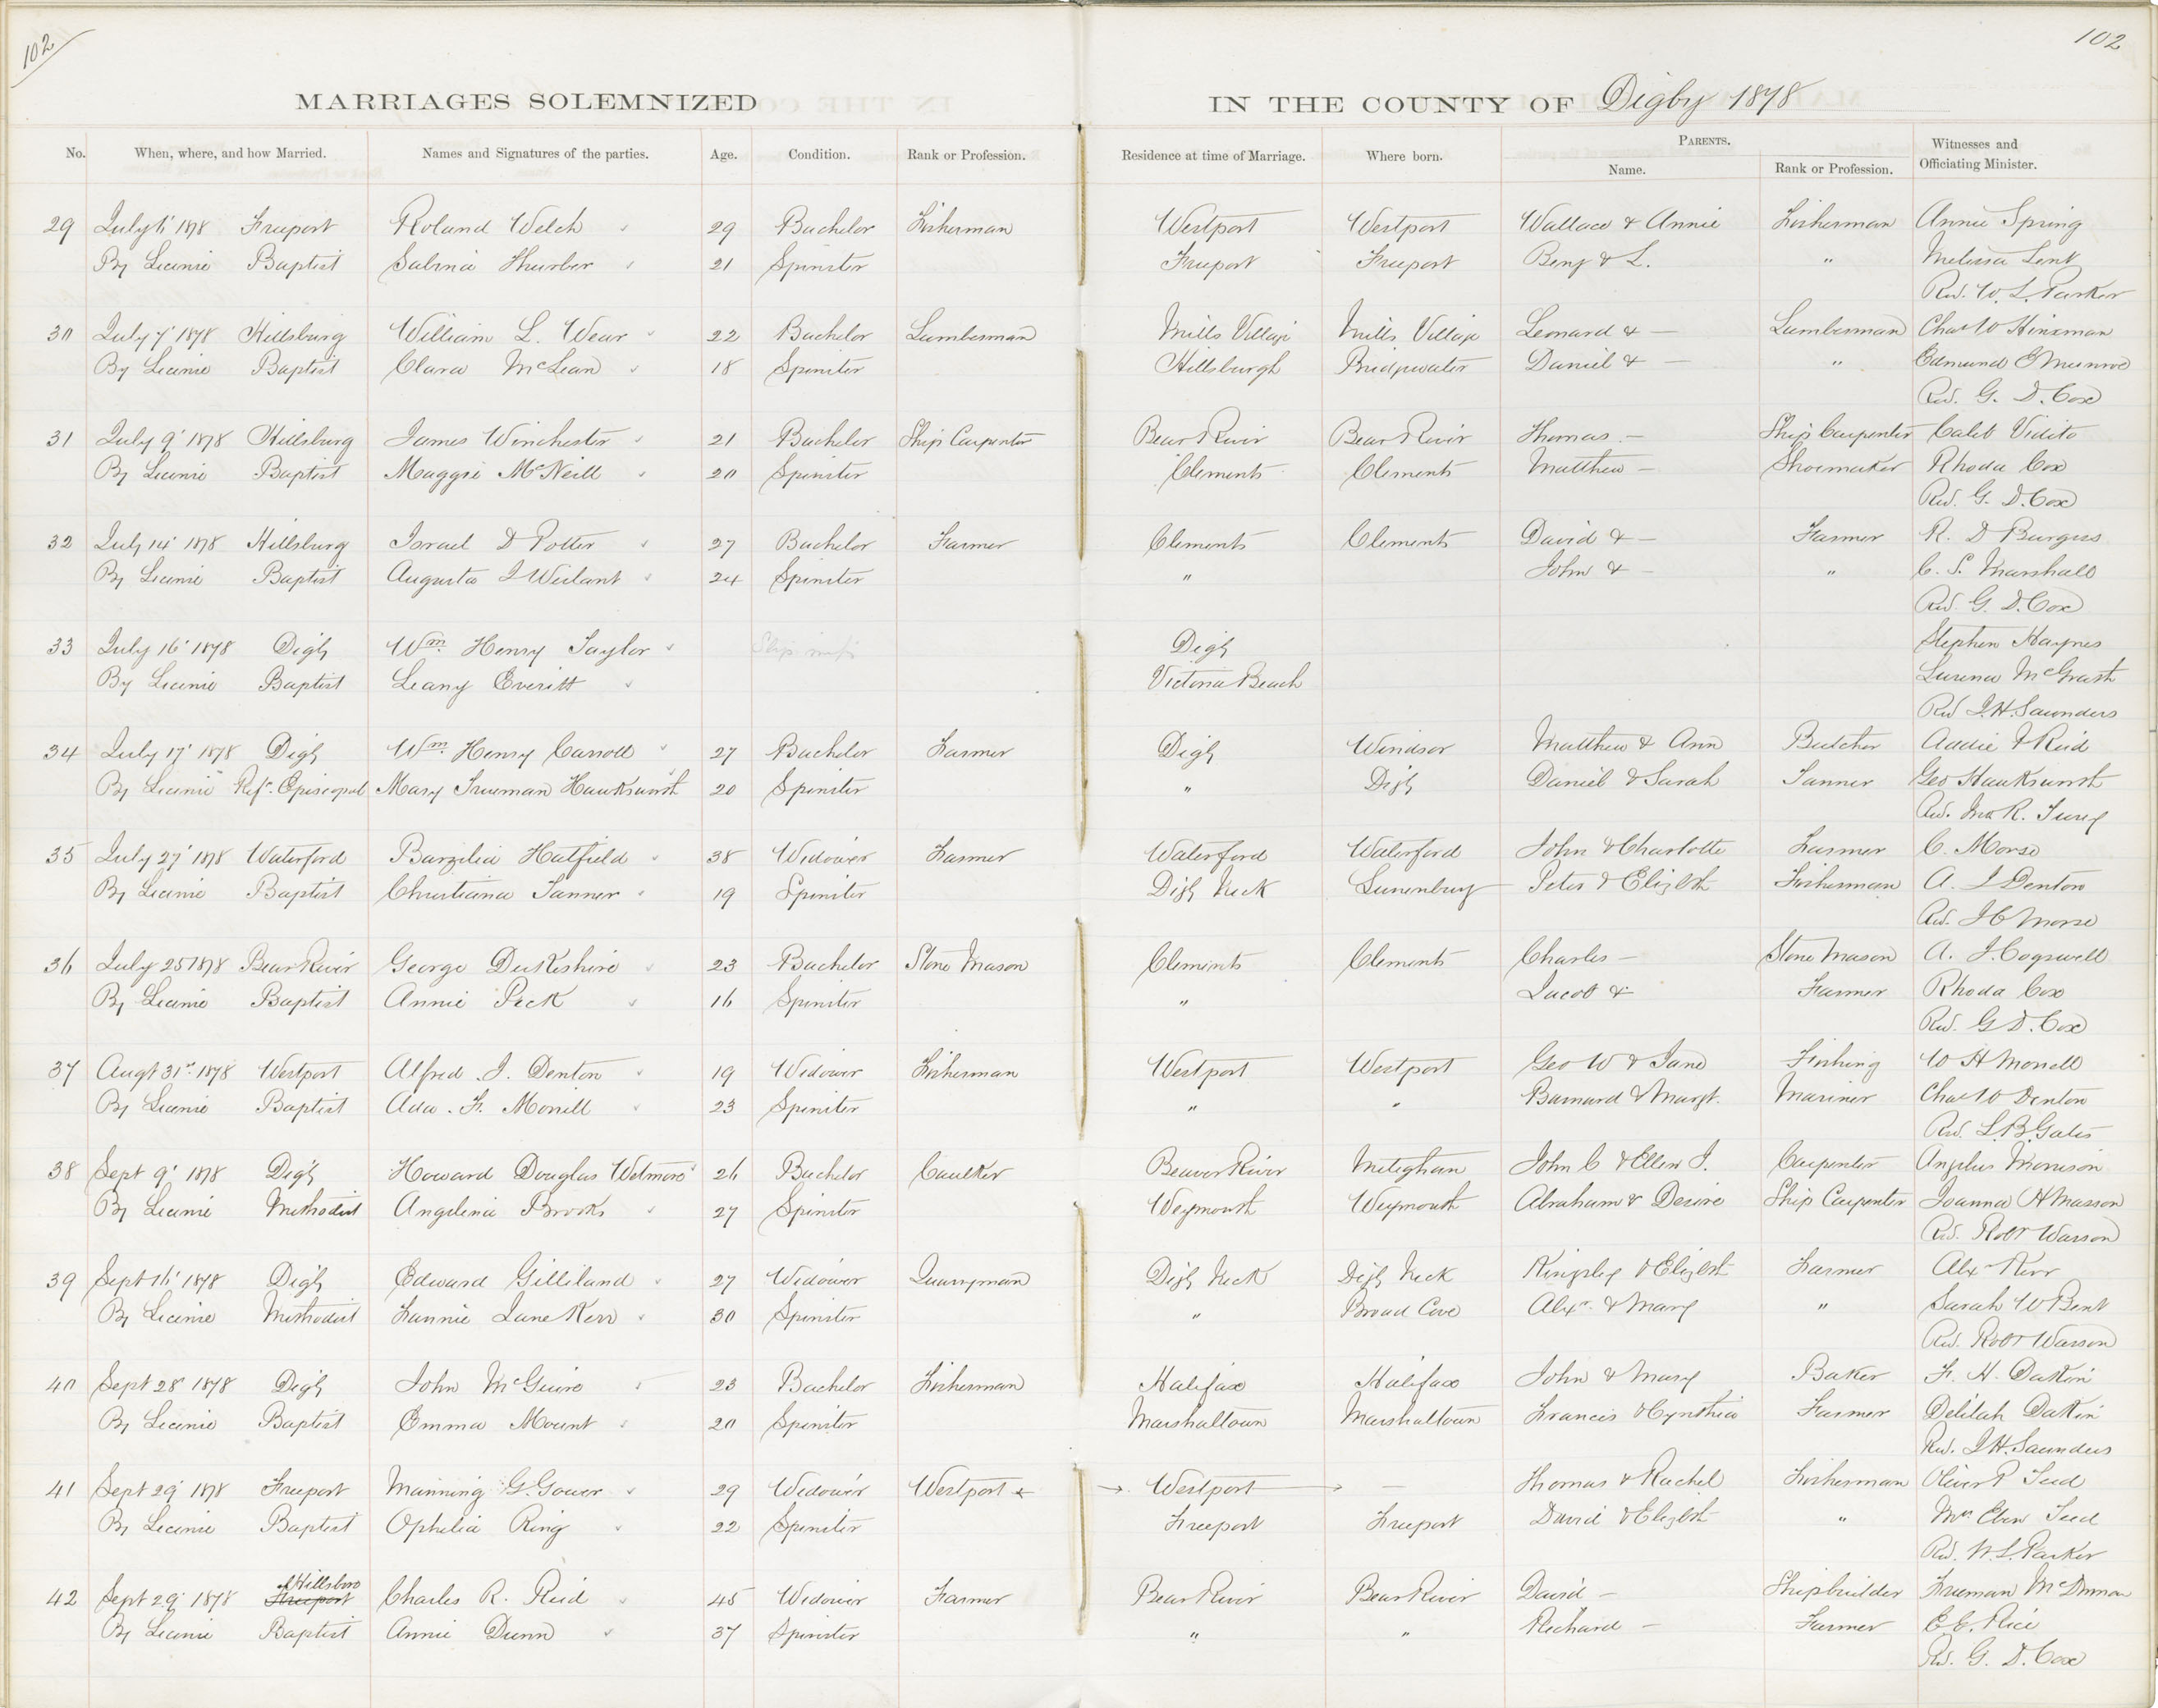 102
102
MARRIAGES SOLEMNIZED IN THE COUNTY OF Digby 1878
No. When, where, and how Married. Names and Signatures of the parties. Age. Condition. Rank or Profession. Residence at time of Marriage. Where born. PARENTS. Name. Rank or Profession. Witnesses and Officiating Minister.
29 July 1878 Freeport Roland Welch 29 Bachelor Fisherman Westport Westport Wallace & Annie Fisherman Annie Spring
By License Baptist Sabina Thurber 21 Spinster Freeport Freeport Benj & L. " Melissa Lent
Rev. W. L. Parker
30 July 7' 1878 Hillsburg William L. Wear 22 Bachelor Lumberman Mills Village Mills Village Leonard & — Lumberman Chas W Hinxman
By License Baptist Clara McLean 18 Spinster Hillsburgh Bridgewater Daniel & — " Edmund E Munroe
Rev. G. D. Cox
31 July 9' 1878 Hillsburg James Winchester 21 Bachelor Ship Carpenter Bear River Bear River Thomas — Ship Carpenter Caleb Vidito
By License Baptist Maggie McNeill 20 Spinster Clements Clements Matthew — Shoemaker Rhoda Cox
Rev. G. D. Cox
32 July 14' 1878 Hillsburg Israel D Potter 27 Bachelor Farmer Clements Clements David & — Farmer R. D Burgess
By License Baptist Augusta J Weilant 24 Spinster " John & — " C. S. Marshall
Rev. G. D. Cox
33 July 16' 1878 Digby Wm. Henry Taylor Digby Stephen Haynes
By License Baptist Leany Everitt Victoria Beach Lurena McGrath
Rev J. H. Saunders
34 July 17' 1878 Digby Wm Henry Carroll 27 Bachelor Farmer Digby Windsor Matthew & Ann Butcher Addie Reid
By License Ref. Episcopal Mary Trueman Hawksworth 20 Spinster " Digby Daniel & Sarah Tanner Geo Hawksworth
Rev. R.
35 July 27' 1878 Waterford Barzilia Hatfield 38 Widower Farmer Waterford Waterford John & Charlotte Farmer C. Morse
By License Baptist Christiana Tanner 19 Spinster Digby Neck Lunenburg Peter & Elizbth Fisherman A. J Denton
Rev. J C Morse
36 July 25 1878 Bear River George Dukeshire 23 Bachelor Stone Mason Clements Clements Charles — Stone Mason A. J. Cogswell
By License Baptist Annie Peck 16 Spinster " Jacob & Farmer Rhoda Cox
Rev. G D. Cox
37 Augt 31st 1878 Westport Alfred J. Denton 19 Widower Fisherman Westport Westport Geo W & Jane Fishing W H Morrell
By License Baptist Ada. F. Morrill 23 Spinster " " Barnard & Margt. Mariner Chas W Denton
Rev. L. B. Gates
38 Sept 9' 1878 Digby Howard Douglas Wetmore 26 Bachelor Caulker Beaver River Meteghan John C & Ellen J. Carpenter Morrison
By License Methodist Angelina Brooks 27 Spinster Weymouth Weymouth Abraham & Desire Ship Carpenter Joanna H Masson
Rev. Robt Wasson
39 Sept 16' 1878 Digby Edward Gilliland 27 Widower Quarryman Digby Neck Digby Neck Kingsley & Elizbth Farmer Alx Kerr
By License Methodist Fannie Jane Kerr 30 Spinster " Broad Cove Alxr. & Mary " Sarah W Bent
Rev. Robt Wasson
40 Sept 28' 1878 Digby John McGuire 23 Bachelor Fisherman Halifax Halifax John & Mary Baker F. H. Dakin
By License Baptist Emma Mount 20 Spinster Marshaltown Marshaltown Francis & Cynthia Farmer Delilah Dakin
Rev. J. H. Saunders
41 Sept 29' 1878 Freeport Manning G. Gower 29 Widower Westport Westport — Thomas & Rachel Fisherman Oliver P Teed
By License Baptist Ophelia Ring 22 Spinster Freeport Freeport David & Elizbth " Mrs. Eben Teed
Rev. W. L. Parker
Hillsboro
42 Sept 29' 1878 Freeport Charles R. Reid 45 Widower Farmer Bear River Bear River David — Shipbuilder Freeman
By License Baptist Annie Dunn 37 Spinster " " Richard — Farmer E. E. Rice
Rev. G. D. Cox